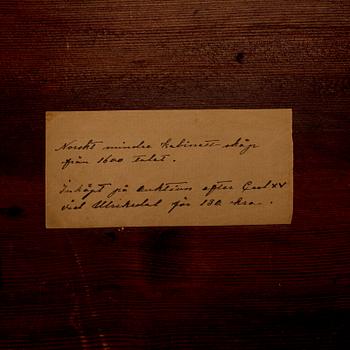 Norskt mindre kabinett skåp
från 1600 talet.
Inköpt på auktion efter Carl XV
vid Ulriksdal för 130 kro.